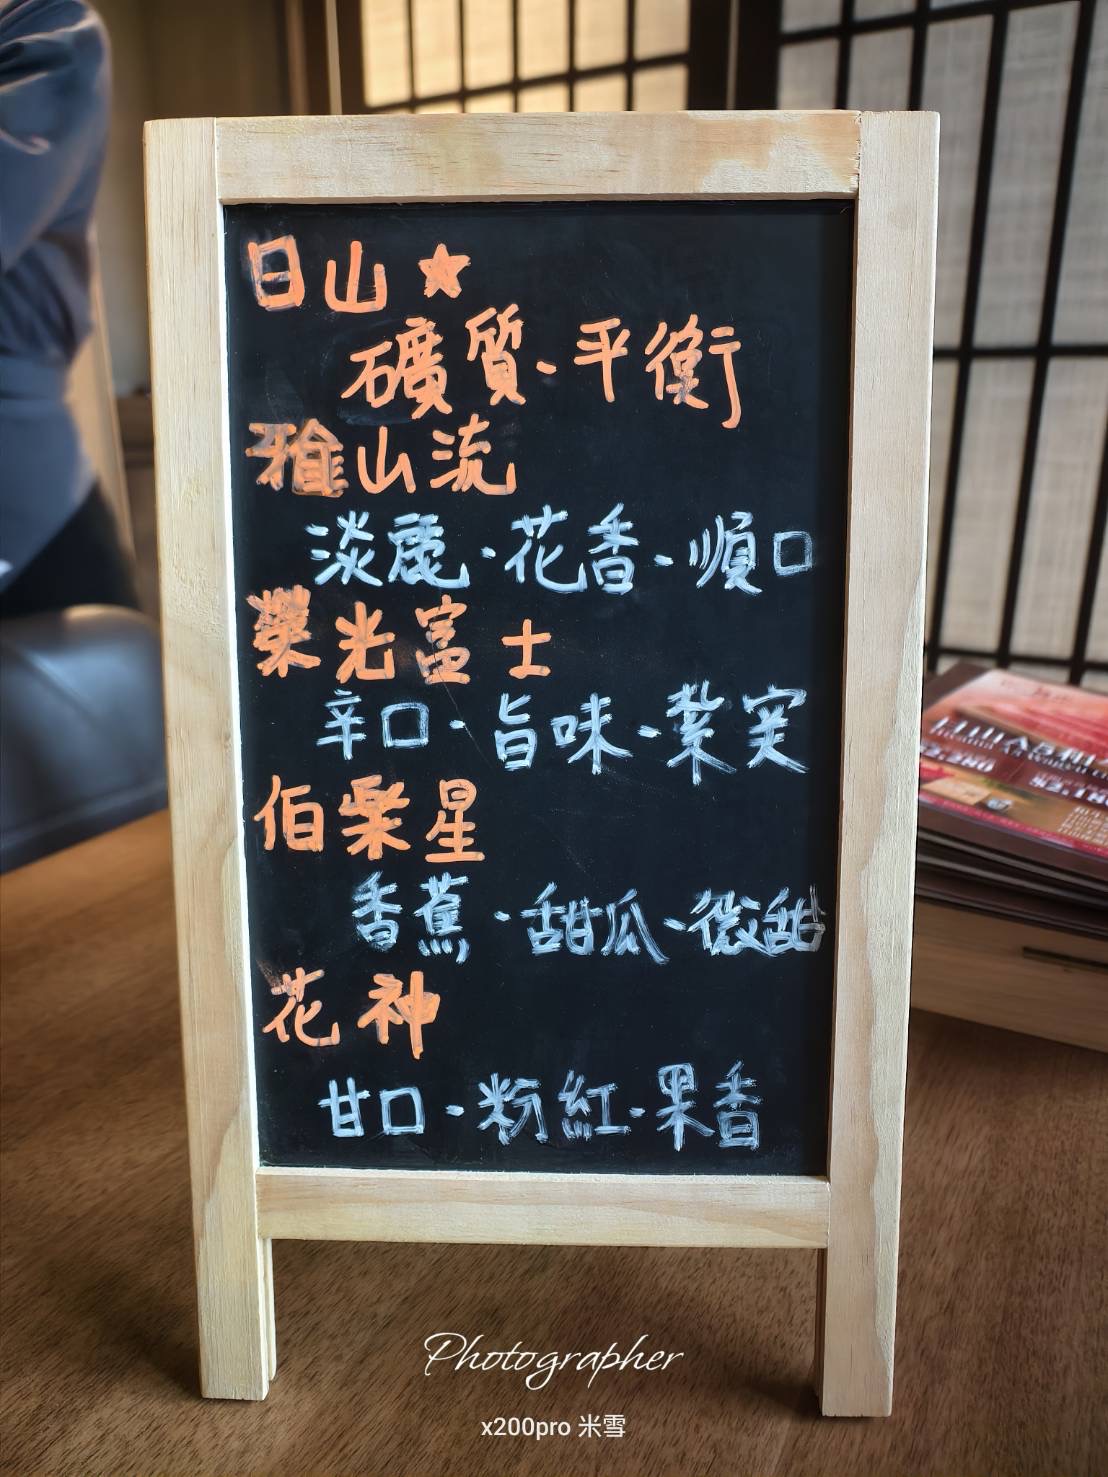 日山★
礦質、平衡
山流
淡麗・花香・順口
榮光富士
辛口・旨味・紮実
伯樂星
香蕉・甜瓜・微甜
花神
甘口・粉紅・果香
Photographer
x200pro 米雪